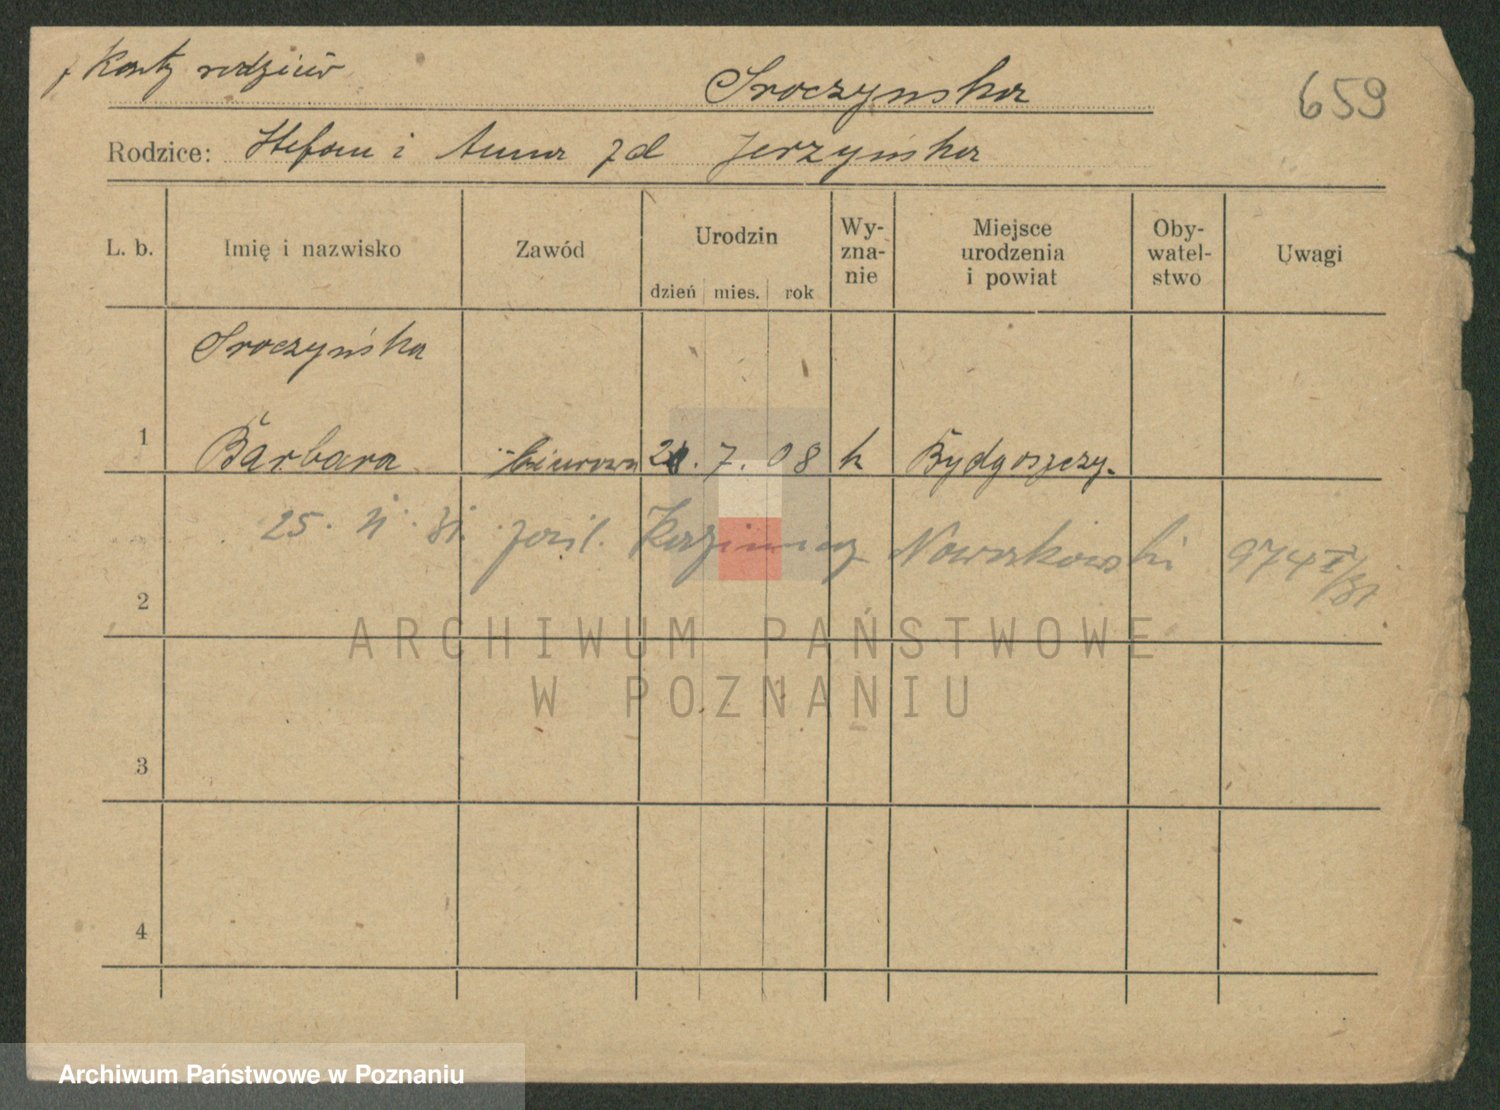 z karty rodziców
Sroczyńska
659
Rodzice: Stefan i Anna zd Jerzyńska
L. b. Imię i nazwisko Zawód Urodzin dzień mies. rok Wy-zna-nie Miejsce urodzenia i powiat Oby-watel-stwo Uwagi
Sroczyńska
1 Barbara biurowa 7. 08 k Bydgoszcz
25. 31. zaśl. Kazimierz Nowakowski 974
2
ARCHIWUM PAŃSTWOWE
W POZNANIU
3
4
Archiwum Państwowe w Poznaniu